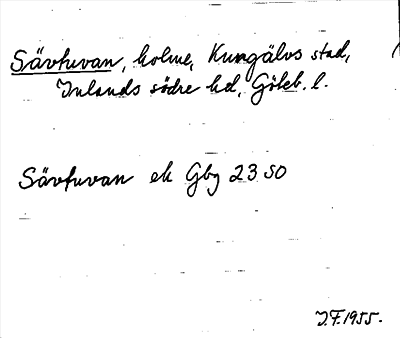 Sävtuvan, holme, Kungälvs stad,
Inlands södre hd, Göteb. l.
Sävtuvan ek Gbg 23 SO
J.F. 1955.